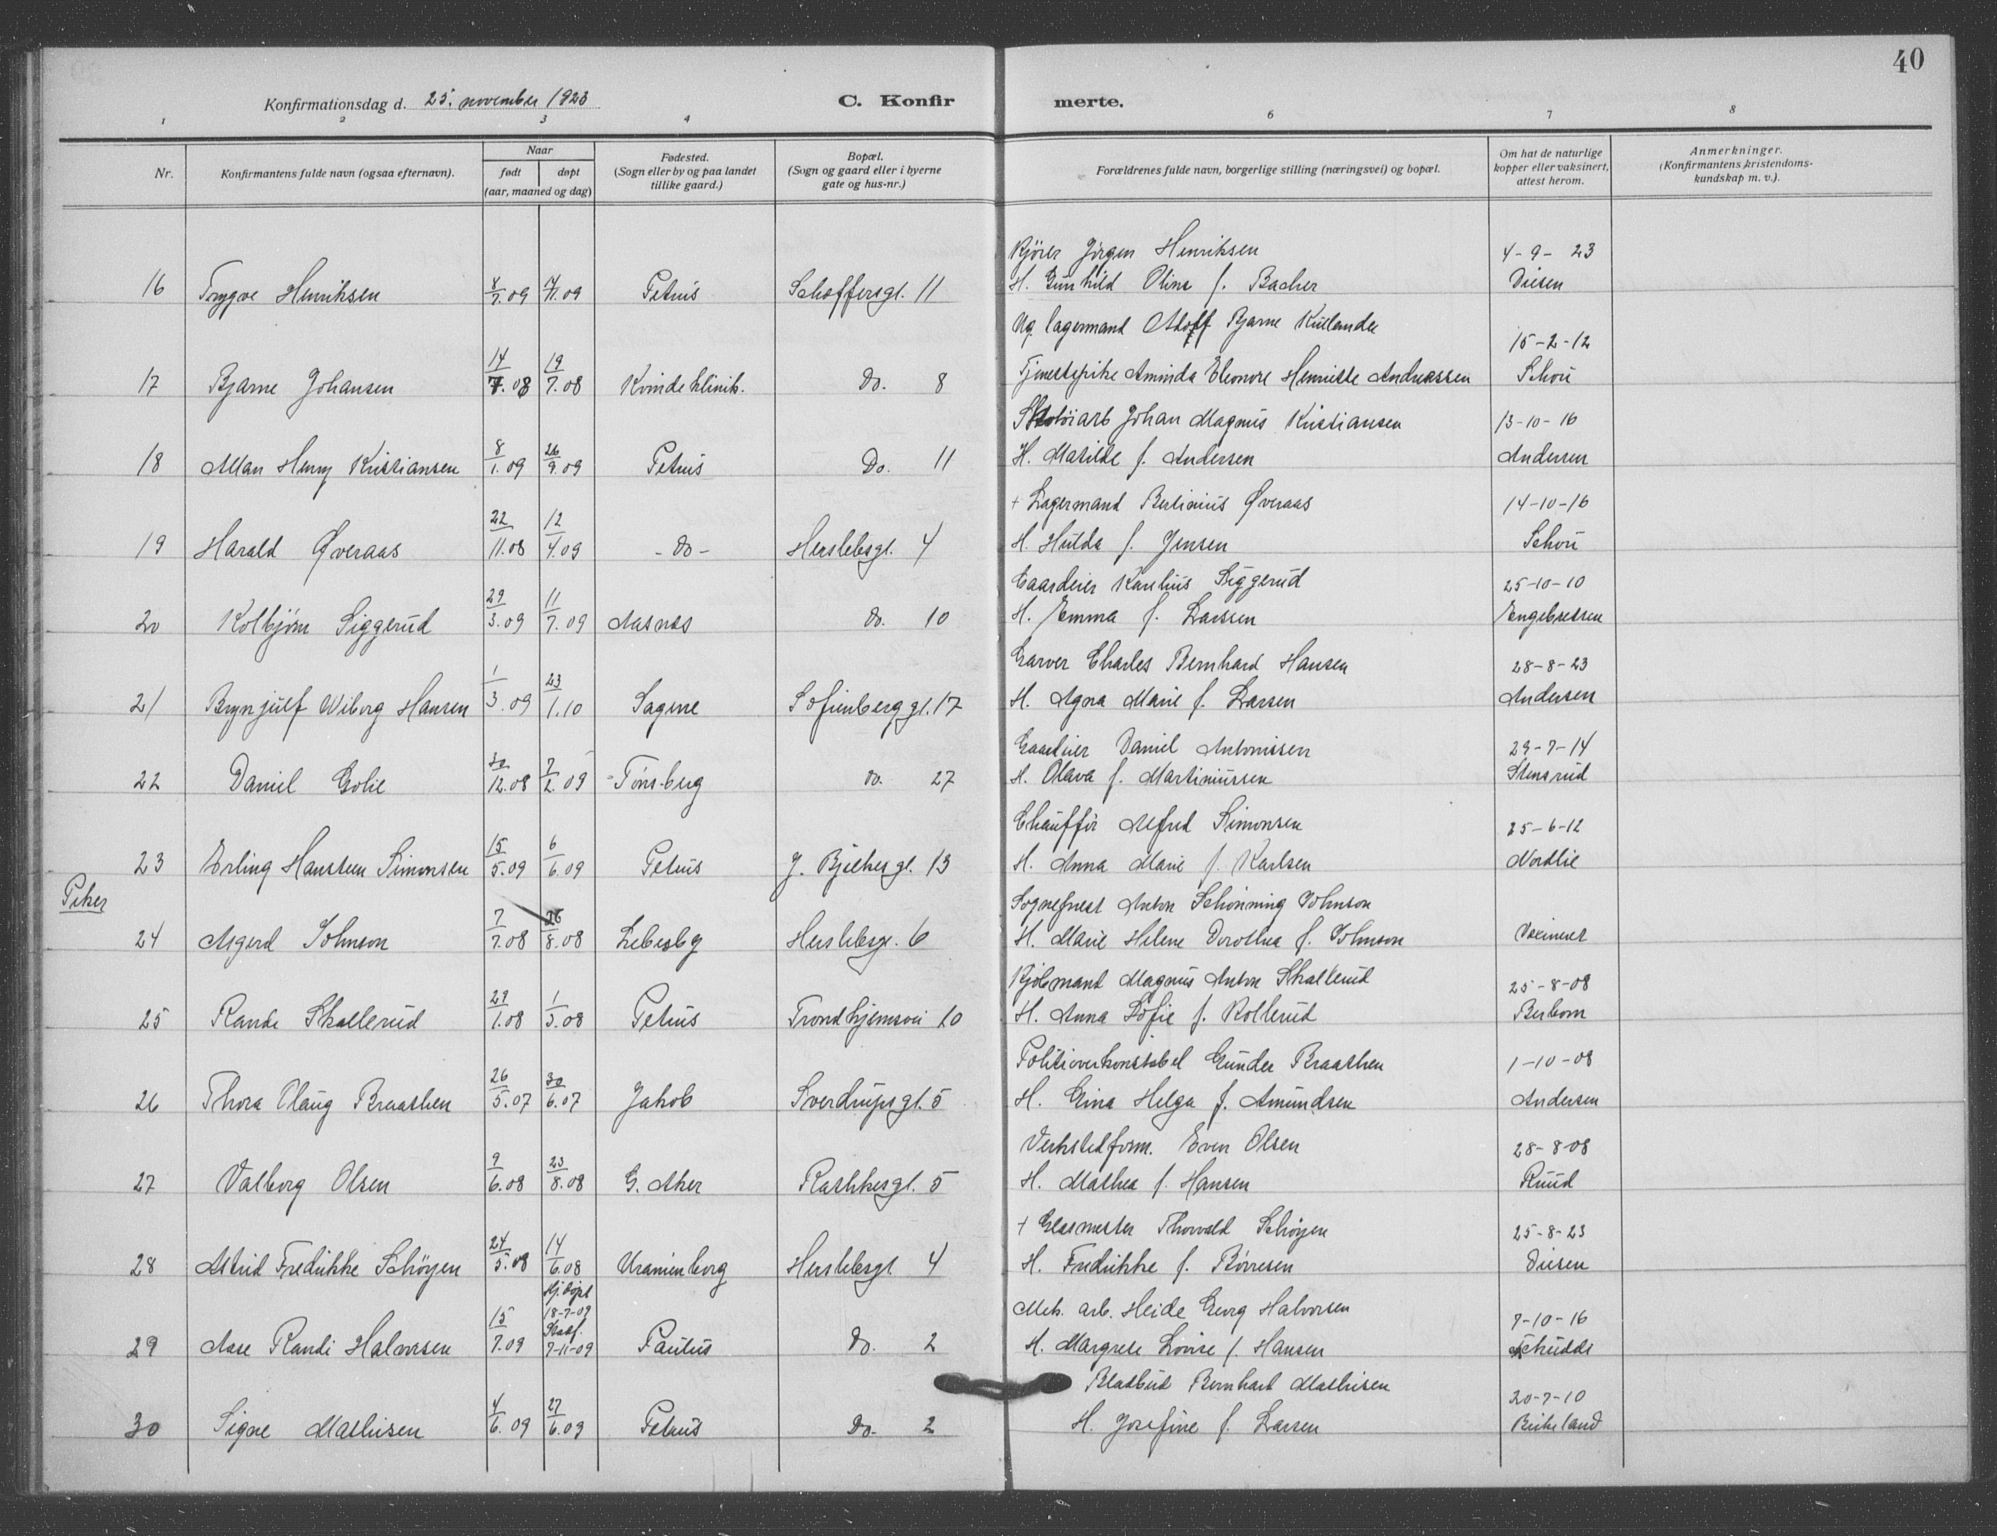 40
Konfirmationsdag d. 25. november 1923
C. Konfir merte.
1 2 3 4 6 7 8
Nr.
Konfirmantens fulde navn (ogsaa efternavn).
Naar
født døpt
(aar, maaned og dag)
Fødested.
(Sogn eller by og paa landet
tillike gaard.)
Bopæl.
(Sogn og gaard eller i byerne
gate og hus-nr.)
Forældrenes fulde navn, borgerlige stilling (næringsvei) og bopæl.
Om hat de naturlige
kopper eller vaksinert,
attest herom.
Anmerkninger.
(Konfirmantens kristendoms-
kundskap m. v.).
Kjører Jørgen Henriksen 4-9-23
16 Trygve Henriksen 8/7.09 7/11.09 Petrus Schoffersgt. 11 H. Gunhild Olina f. Bacher Diesen
Ug. lagermand Adolf Bjarne Kullander 15-2-12
17 Bjarne Johansen 14/7.08 19/7.08 Kvindeklinik. Do. 8 Tjenestepike Aminda Eleonore Henriette Andreassen Schou
Skotøiarb Johan Magnus Kristiansen 13-10-16
18 Allan Henry Kristiansen 8/1.09 26/9.09 Petrus Do. 11 H. Matilde f. Andersen Andersen
+ Lagermand Bertinius Øveraas 14-10-16
19 Harald Øveraas 22/11.08 12/4.09 - Do - Herslebsgt. 4 H. Hulda f. Jensen Schou
Gaardeier Karelius Siggerud 25-10-10
20 Kolbjørn Siggerud 29/3.09 11/7.09 Aasnes Do. 10 H. Emma f. Larsen Engebretsen
Garver Charles Bernhard Hansen 28-8-23
21 Brynjulf Wiborg Hansen 1/3.09 23/1.10 Sagene Sofienberggt. 17 H. Agna Marie f. Larsen Andersen
Gaardeier Daniel Antonissen 29-7-14
22 Daniel Golie 30/12.08 7/2.09 Tønsberg Do. 27 H. Olava f. Martiniussen Stensrud
Chauffør Alfred Simonsen 25-6-12
23 Erling Hansteen Simonsen 15/5.09 6/6.09 Petrus J. Bjelkesgt. 13 H. Anna Marie f. Karlsen Nordlie
Piker
Sogneprest Anton Schønning Johnson
24 Asgerd Johnson 7/7.08 26/8.08 Lebesby Herslebsgt. 6 H. Marie Helene Dorothea f. Johnson Vaccinert
Kjølmand Magnus Anton Skallerud 25-8-08
25 Randi Skallerud 29/1.08 1/3.08 Petrus Trondhjemsvei 10 H. Anna Sofie f. Kollerud Berbom
Politioverkonstabel Gunder Braathen 1-10-08
26 Thora Olaug Braathen 26/5.07 30/6.07 Jakob Sverdrupsgt. 5 H. Gina Helga f. Amundsen Andersen
Verkstedform. Even Olsen 28-8-08
27 Valborg Olsen 9/6.08 23/8.08 G. Aker Rathkesgt. 5 H. Mathea f. Hansen Ruud
+ Glasmester Thorvald Schøyen 25-8-23
28 Astrid Fredrikke Schøyen 24/5.08 14/6.08 Uranienborg Herslebsgt 4 H. Fredrikke f. Børresen Diesen
Hj. døpt
18-7-09
Stadf.
Mek. arb. Heide Georg Halvorsen 7-10-16
29 Aase Randi Halvorsen 15/7.09 7-11-09 Paulus Do. 2 H. Margrete Lovise f. Hansen Schudde
Bladbud Bernhart Mathisen 20-7-10
30 Signe Mathisen 4/6.09 27/6.09 Petrus Do. 2 H. Josefine f. Larsen Birkeland